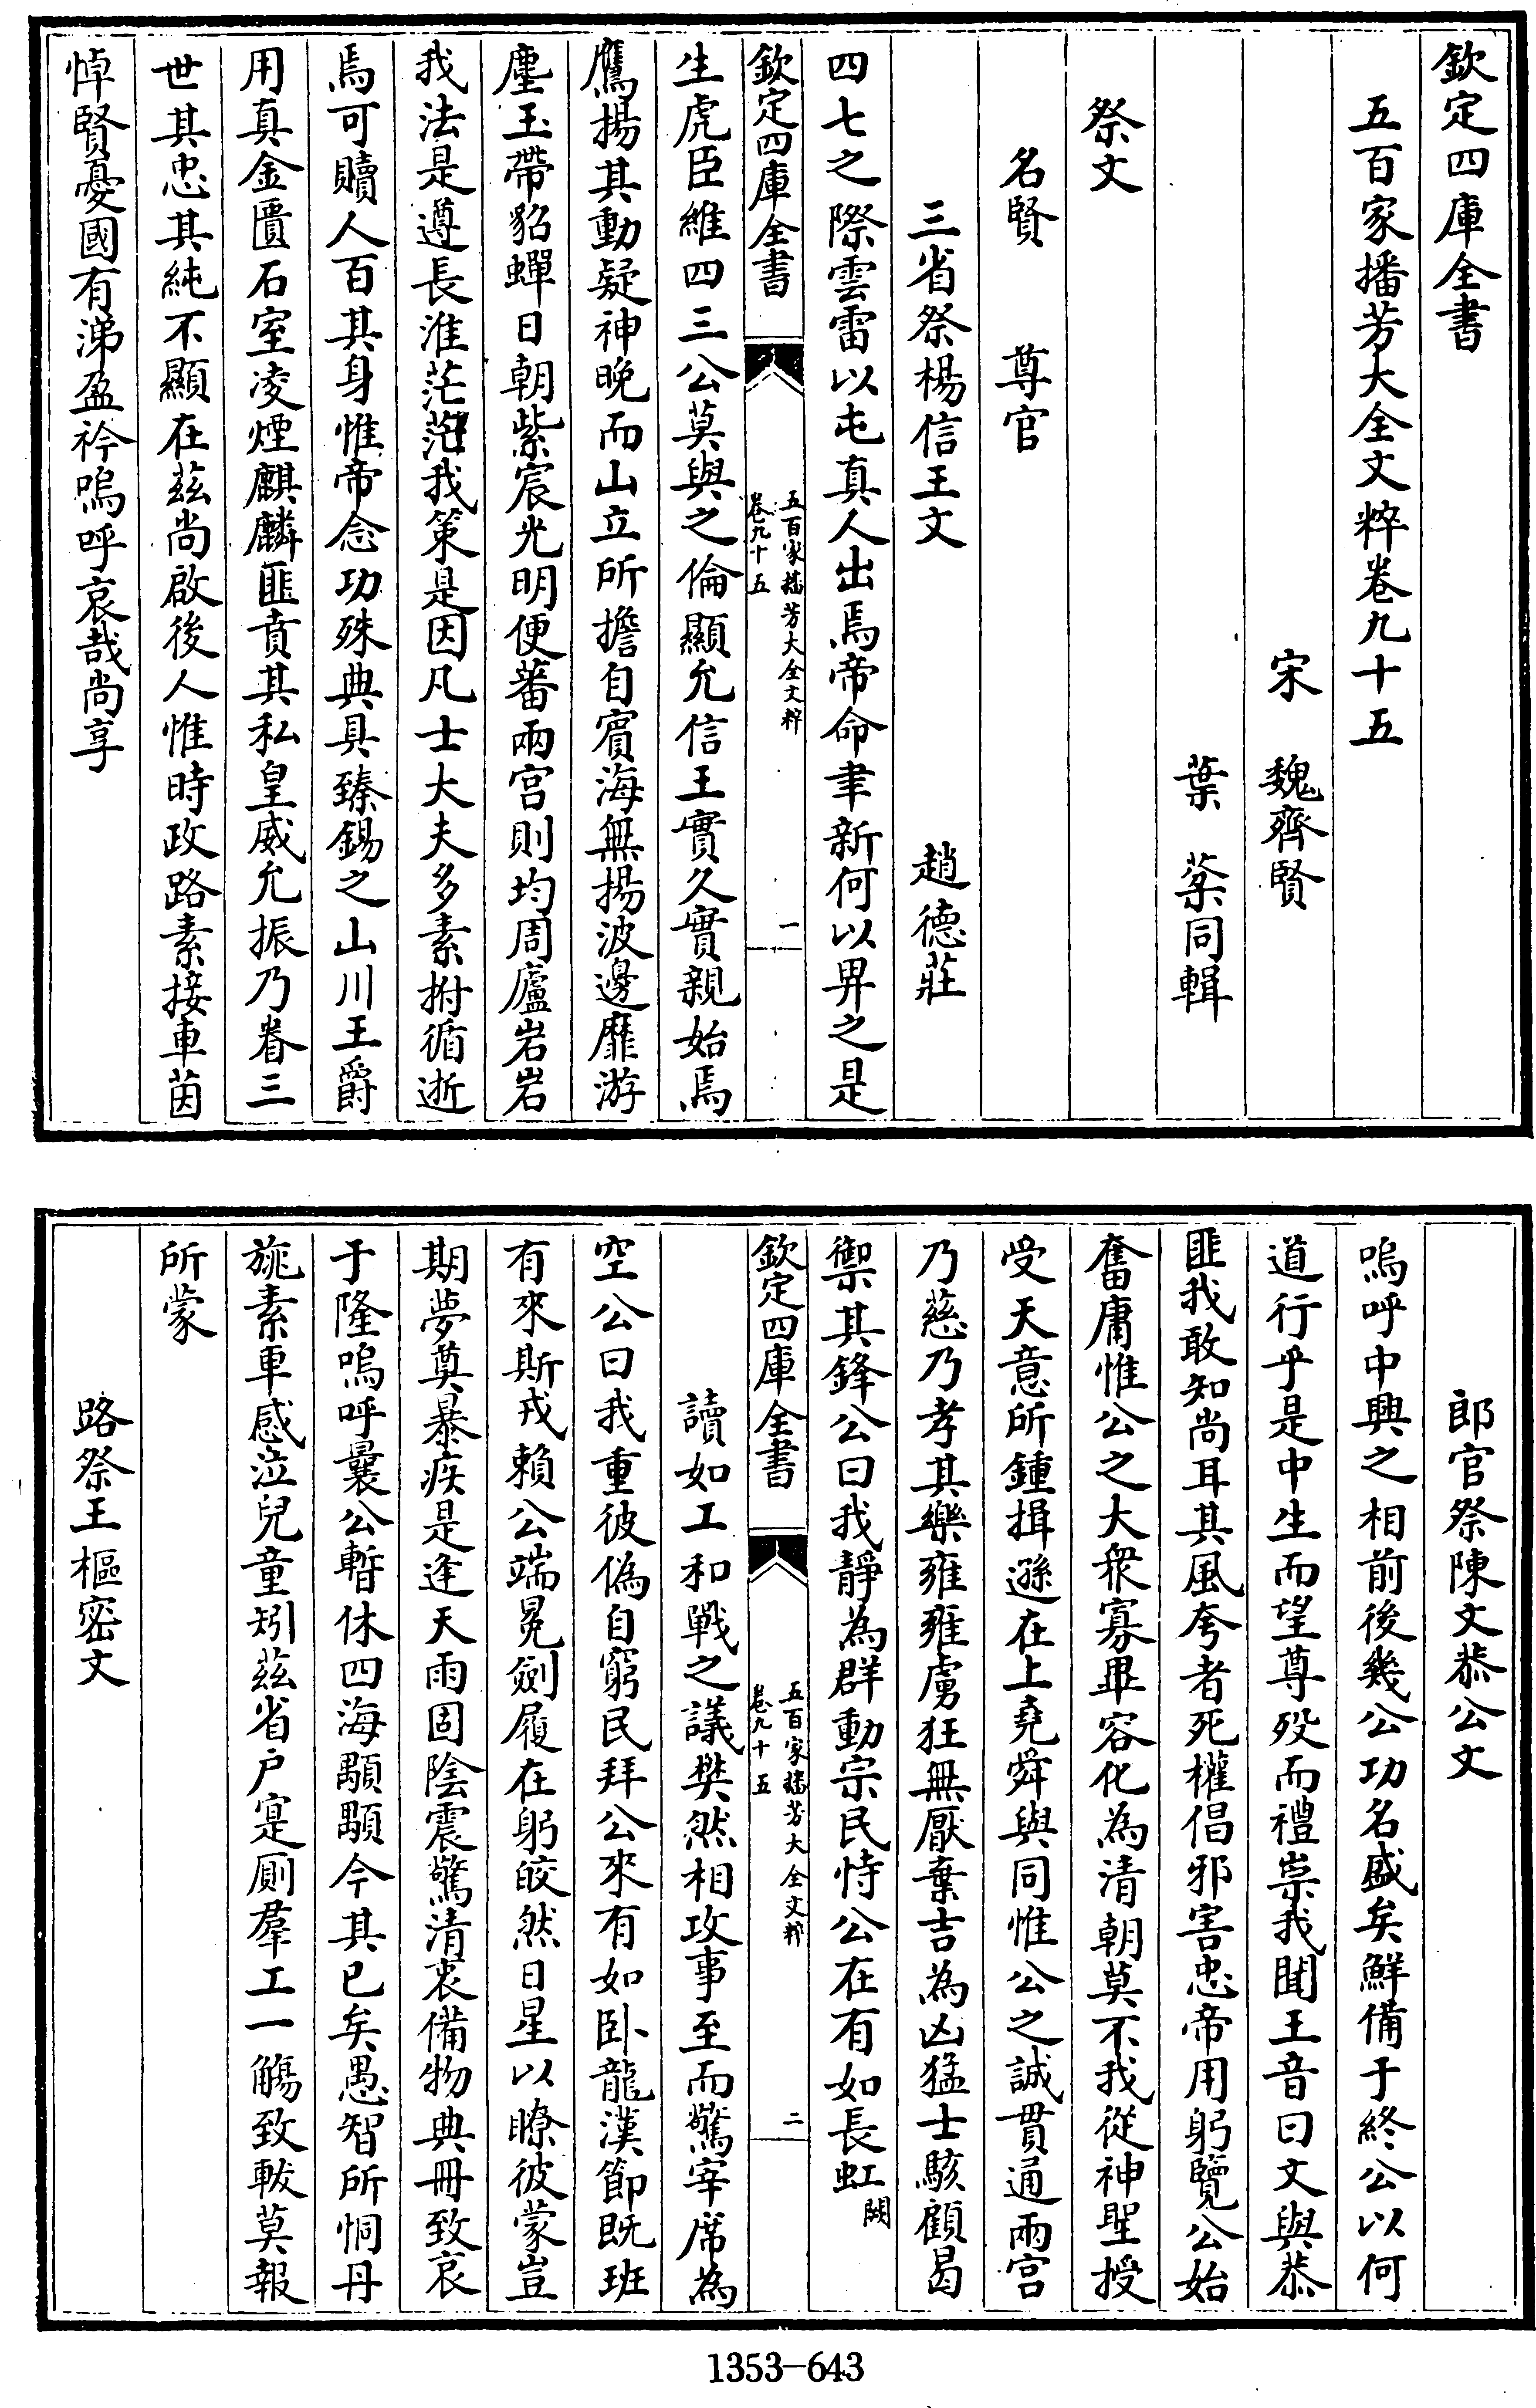 欽定四庫全書
五百家播芳大全文粹卷九十五
宋　魏齊賢
葉　棻同輯
祭文
名賢　尊官
三省祭楊信王文　趙德莊
四七之際雲雷以屯真人出焉帝命聿新何以畀之是
欽定四庫全書　五百家播芳大全文粹　卷九十五　一
生虎臣維四三公莫與之倫顯允信王實久實親始焉
鷹揚其動疑神晩而山立所擔自賓海無揚波邊靡游
塵玉帶貂蟬日朝紫宸光明便蕃兩宫則均周廬岩岩
我法是遵長淮茫茫我策是因凡士大夫多素拊循逝
焉可贖人百其身惟帝念功殊典具臻錫之山川王爵
用真金匱石室凌煙麒麟匪賁其私皇威允振乃眷三
世其忠其純不顯在兹尚啟後人惟時政路素接車茵
悼賢憂國有涕盈衿嗚呼哀哉尚享
郎官祭陳文恭公文
嗚呼中興之相前後幾公功名盛矣鮮備于終公以何
道行乎是中生而望尊殁而禮崇我聞王音曰文與恭
匪我敢知尚耳其風夸者死權倡邪害忠帝用躬覽公始
奮庸惟公之大衆寡畢容化為清朝莫不我從神聖授
受天意所鍾揖遜在上堯舜與同惟公之誠貫通兩宫
乃慈乃孝其樂雍雍虜狂無厭棄吉為凶猛士駭顧曷
禦其鋒公曰我靜為群動宗民恃公在有如長虹闕
欽定四庫全書　五百家播芳大全文粹　卷九十五　二
讀如工和戰之議樊然相攻事至而驚宰席為
空公曰我重彼偽自窮民拜公來有如卧龍漢節既班
有來斯戎賴公端冕劒履在躬皎然日星以瞭彼蒙豈
期夢奠暴疾是逢天雨固陰震驚清衷備物典冊致哀
于隆嗚呼曩公暫休四海顒顒今其已矣愚智所恫丹
旐素車感泣兒童矧兹省户寔厠羣工一觴致軷莫報
所蒙
路祭王樞密文
1353-643